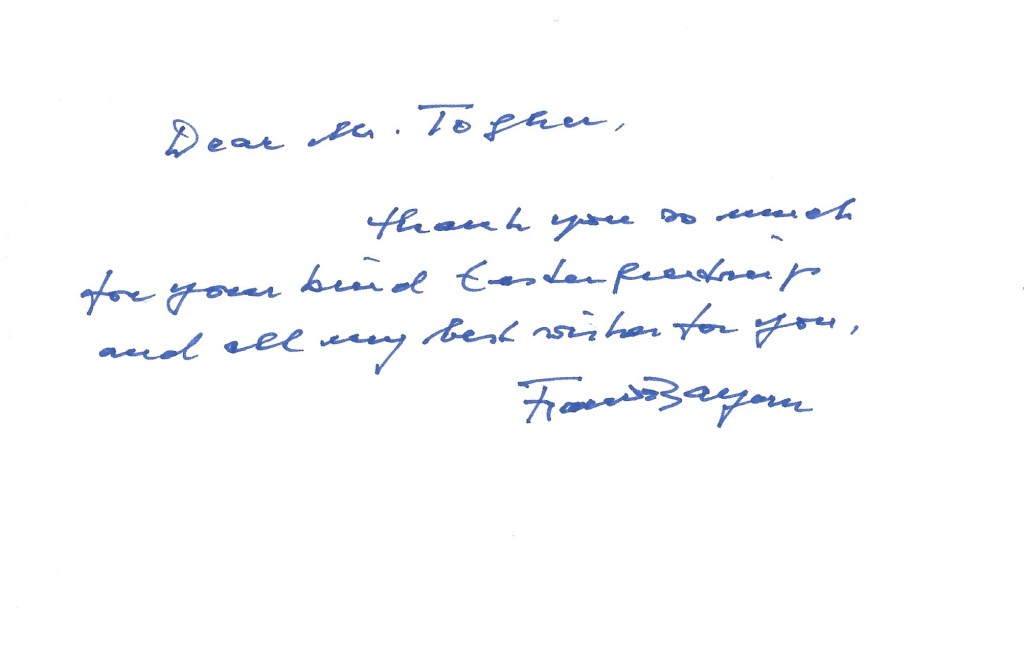 Dear Mr. Togher,
thank you so much
for your kind Easter greetings
and all my best wishes for you,
Franz Bayern